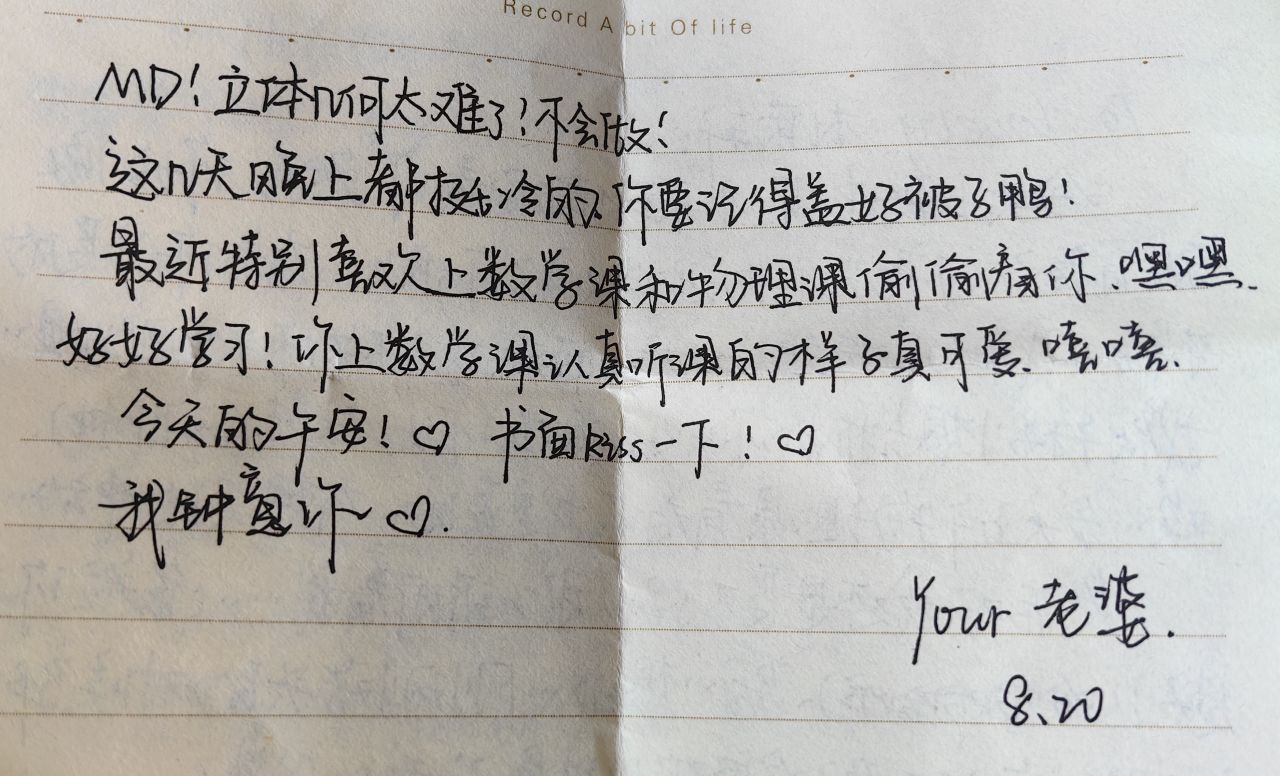 Record A bit Of life
MD!立体几何太难了!不会做!
这几天晚上都挺冷的、你要记得盖好被子鸭!
最近特别喜欢上数学课和物理课偷偷看你、嘿嘿.
好好学习!你上数学课认真听课的样子真可爱、嘻嘻.
今天的午安!♡ 书面kiss一下!♡
我钟意你~♡.
Your 老婆.
8.20